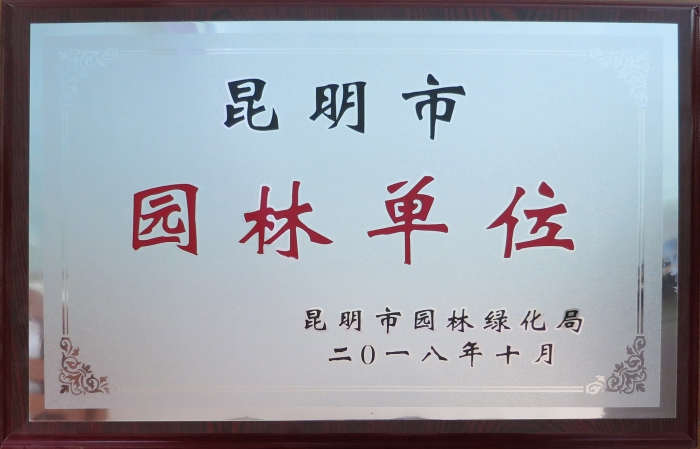 昆明市
园林单位
昆明市园林绿化局
二〇一八年十月